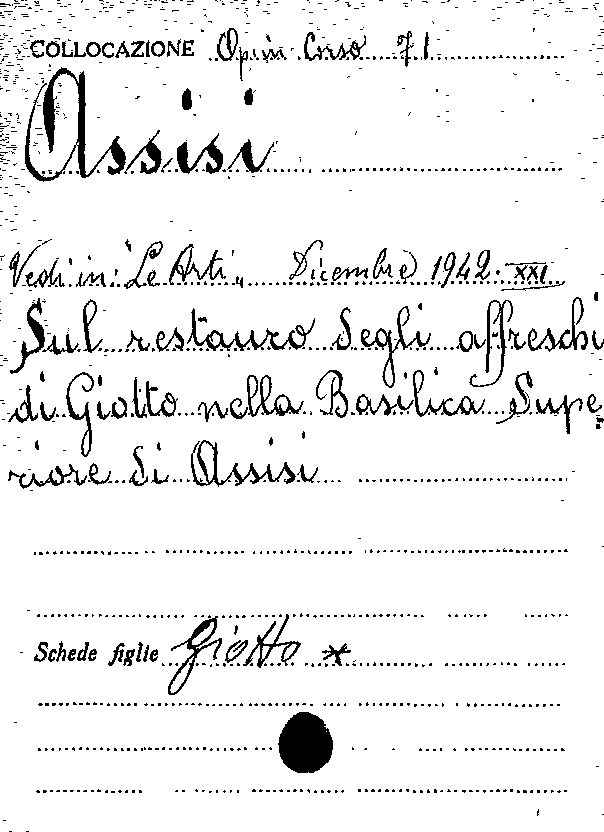 COLLOCAZIONE Op. in Corso 71
Assisi
Vedi in: "Le Arti" Dicembre 1942. XXI
Sul restauro degli affreschi
di Giotto nella Basilica Supe
riore di Assisi
Schede figlie Giotto *